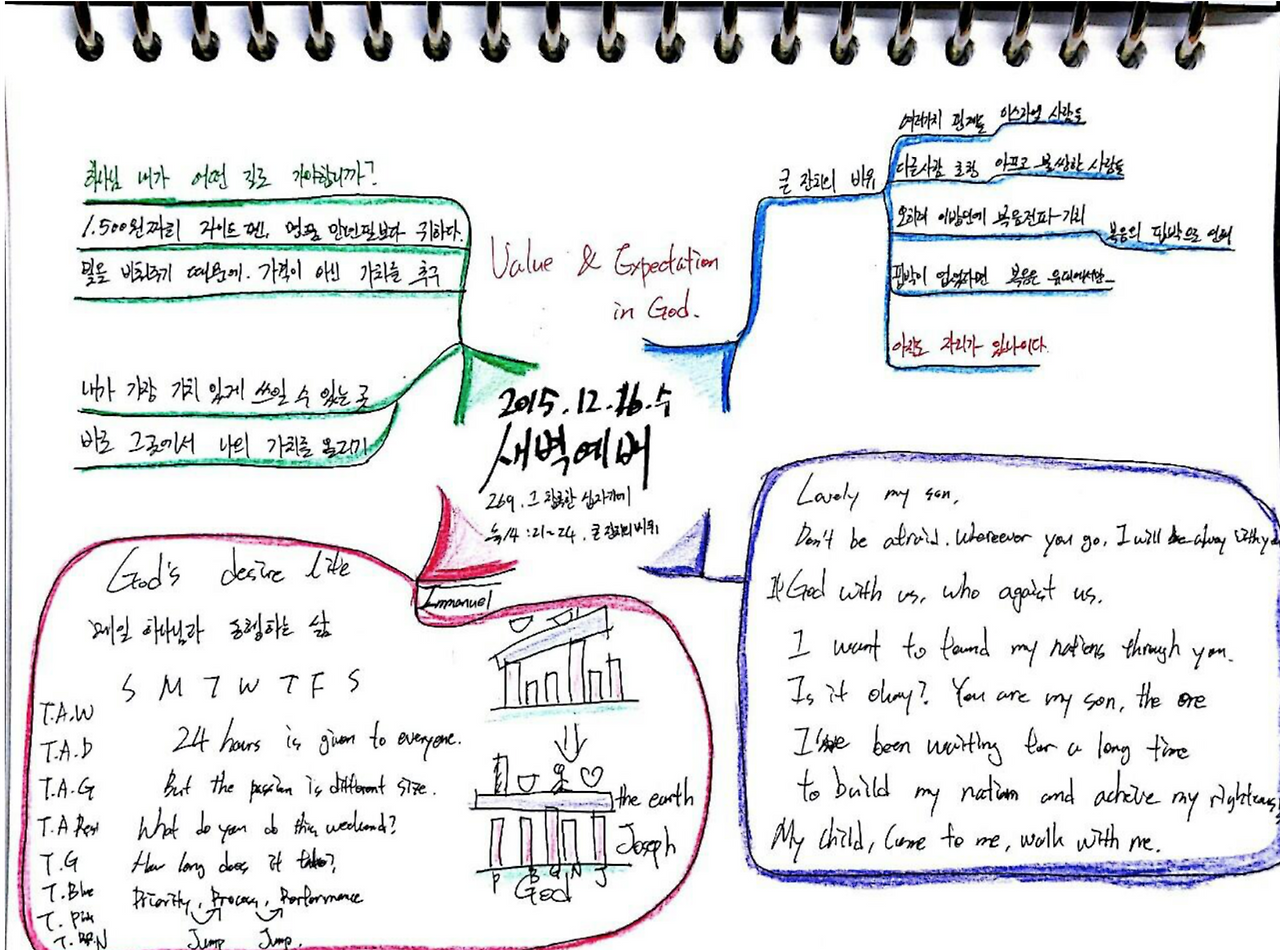 Value & Expectation
in God.
2015.12.16.수
새벽예배
269. 그 참혹한 십자가에
눅14:21~24. 큰 잔치의 비유
내가 어떤 길로 가야합니까?
1.500원짜리 라이트 펜, 명품 만년필보다 귀하다.
빛을 비춰주기 때문에. 가격이 아닌 가치를 추구
내가 가장 가치 있게 쓰일 수 있는 곳
바로 그곳에서 나의 가치를 올리기
큰 잔치의 비유
여러가지 핑계들 이스라엘 사람들
다른사람 초청 아프고 불쌍한 사람들
오히려 이방인에 복음전파-기회
복음의 핍박으로 인해
핍박이 없었다면 복음은 유대에서만_
아직도 자리가 있나이다.
Immanuel
God's desire life
매일 하나님과 동행하는 삶
S M T W T F S
T.A.W
T.A.D
T.A.G
T.A Rest
T.G
T.Blue
T. Pink
24 hours is given to everyone.
But the passion is different size.
What do you do this weekend?
How long does it take?
Priority, Process, Performance
Jump Jump.
the earth
Joseph
P B G N J
God
Lovely my son,
Don't be afraid. wherever you go, I will be alway with you
If God with us, who against us.
I want to found my nations through you.
Is it okay? You are my son, the one
I've been waiting for a long time
to build my nation and achive my righteous
My child, Come to me, walk with me.